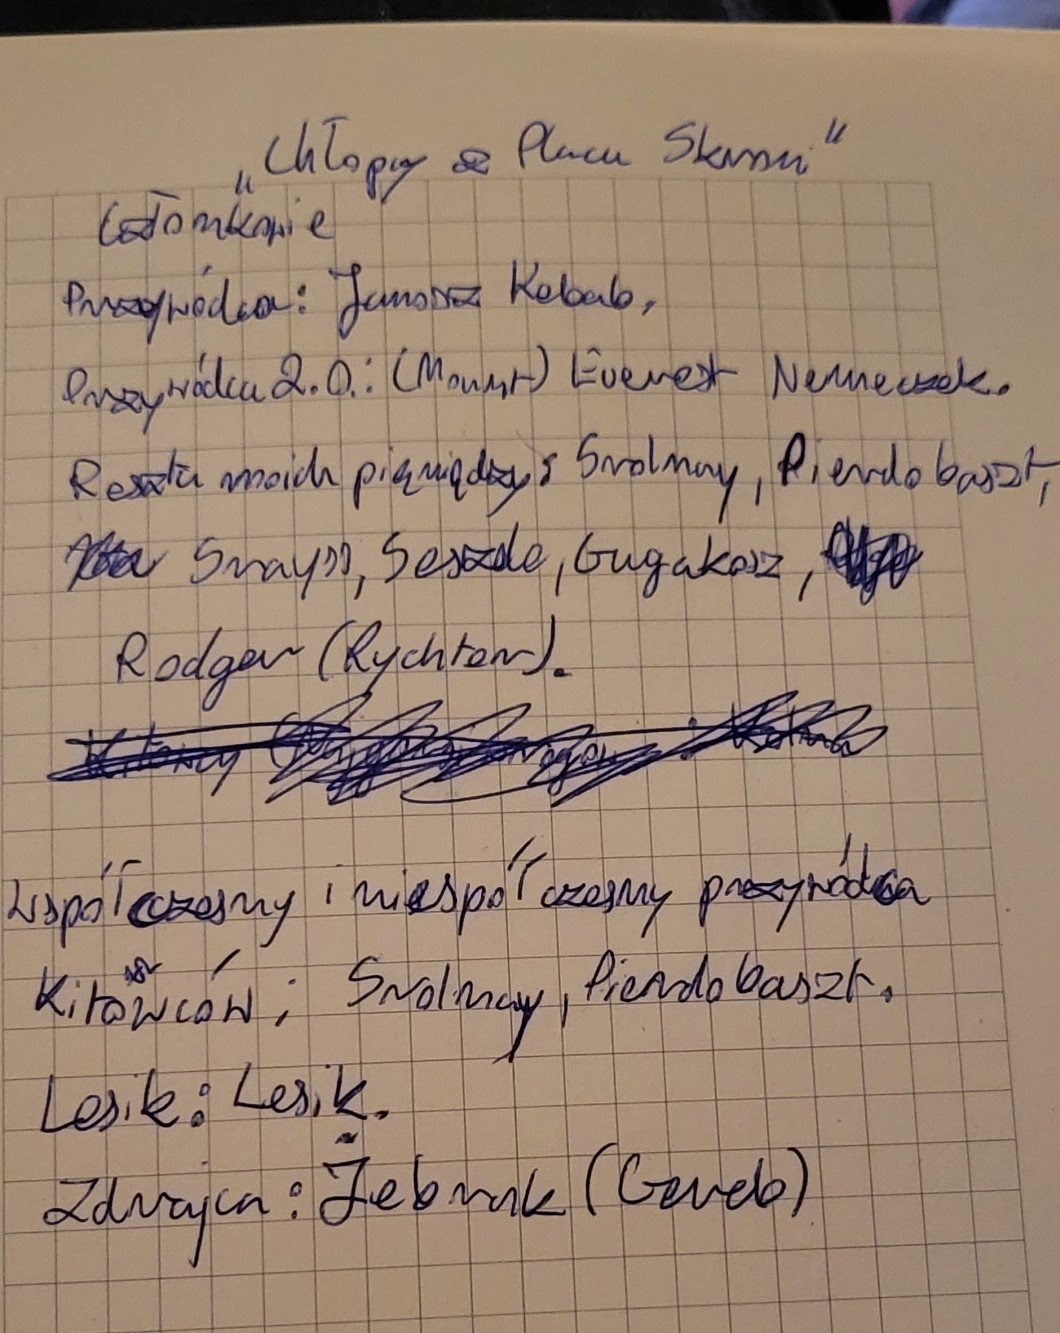 „Chłopcy z Placu Skarsni"
Członkowie
Przywódca: Janosz Kebab,
Przywódca 2.0.: (Mount) Everest Nemeczek.
Reszta moich pięniędzy: Srolnay, Pierdobaszt,
Srayss, Seszde, Gugakosz,
Rodger (Rychter).
Współczesny i niespółczesny przywódca
Kitowców; Srolnay, Pierdobaszt.
Lesik: Lesik.
Zdrajca: Żebrak (Gereb)